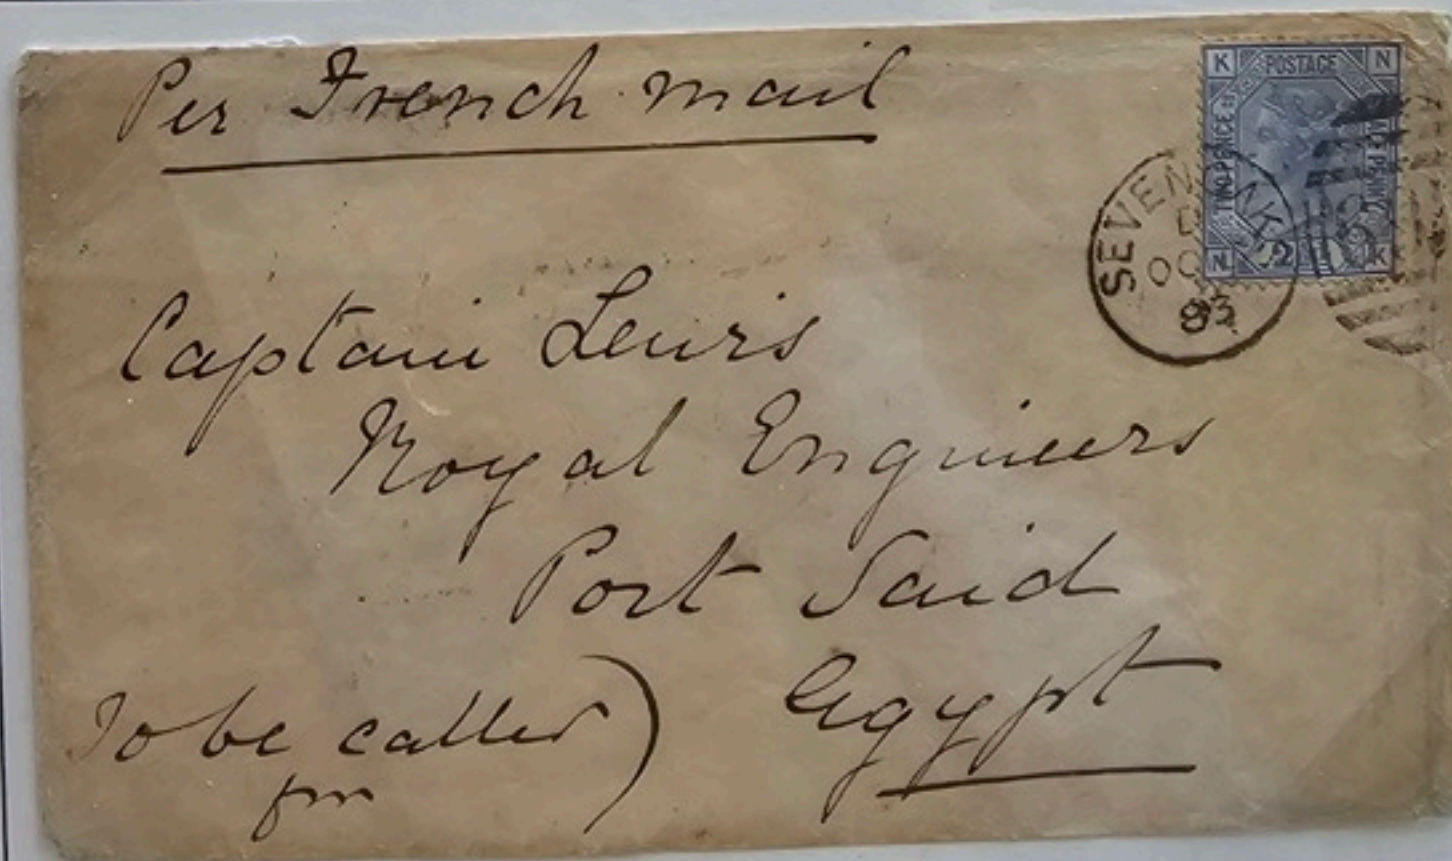 Per French mail
K POSTAGE N
TWO PENCE
HALF PENNY
N K
SEVENOAKS
D
OC
83
Captain Lewis
Royal Engineers
Port Said
Egypt
To be called
for